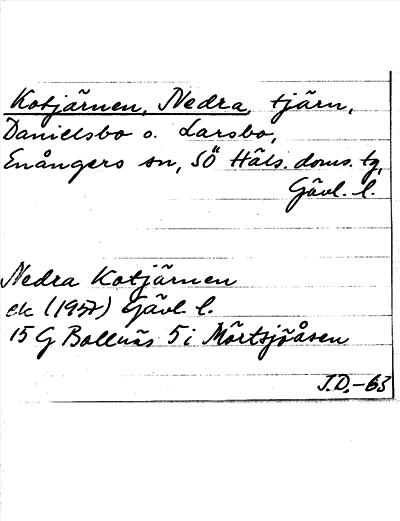 Kotjärnen, Nedra, tjärn,
Danielsbo o. Larsbo,
Enångers sn, SÖ Häls. doms. tg,
Gävl. l.
Nedra Kotjärnen
ek (1957) Gävl l.
15 G Bollnäs 5 i Mörtsjöåsen
J.D.-63